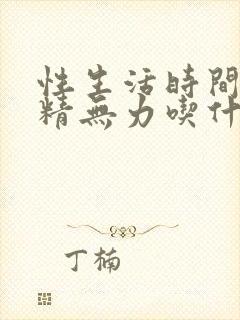 性生活時間
精無力喫什
丁楠